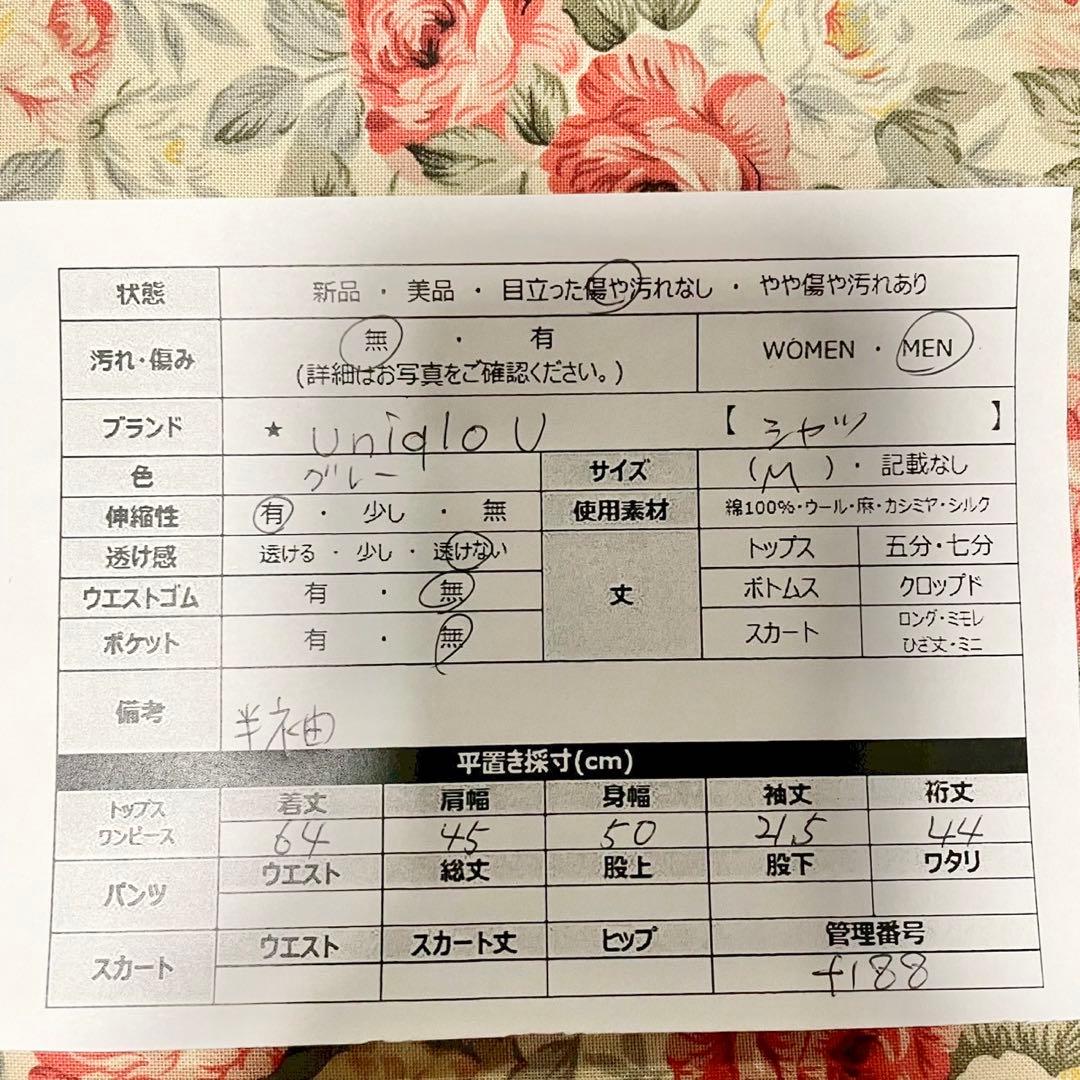 状態 新品 ・ 美品 ・ 目立った傷や汚れなし ・ やや傷や汚れあり
汚れ・傷み 無 ・ 有 WOMEN ・ MEN
(詳細はお写真をご確認ください。)
ブランド ★ uniqlo U 【 シャツ 】
色 グレー サイズ (M)・ 記載なし
伸縮性 有 ・ 少し ・ 無 使用素材 綿100%・ウール・麻・カシミヤ・シルク
透け感 透ける ・ 少し ・ 透けない 丈 トップス 五分・七分
ウエストゴム 有 ・ 無 ボトムス クロップド
ポケット 有 ・ 無 スカート ロング・ミモレ
ひざ丈・ミニ
備考 半袖
平置き採寸(cm)
トップス 着丈 肩幅 身幅 袖丈 裄丈
ワンピース 64 45 50 21.5 44
パンツ ウエスト 総丈 股上 股下 ワタリ
スカート ウエスト スカート丈 ヒップ 管理番号
f188